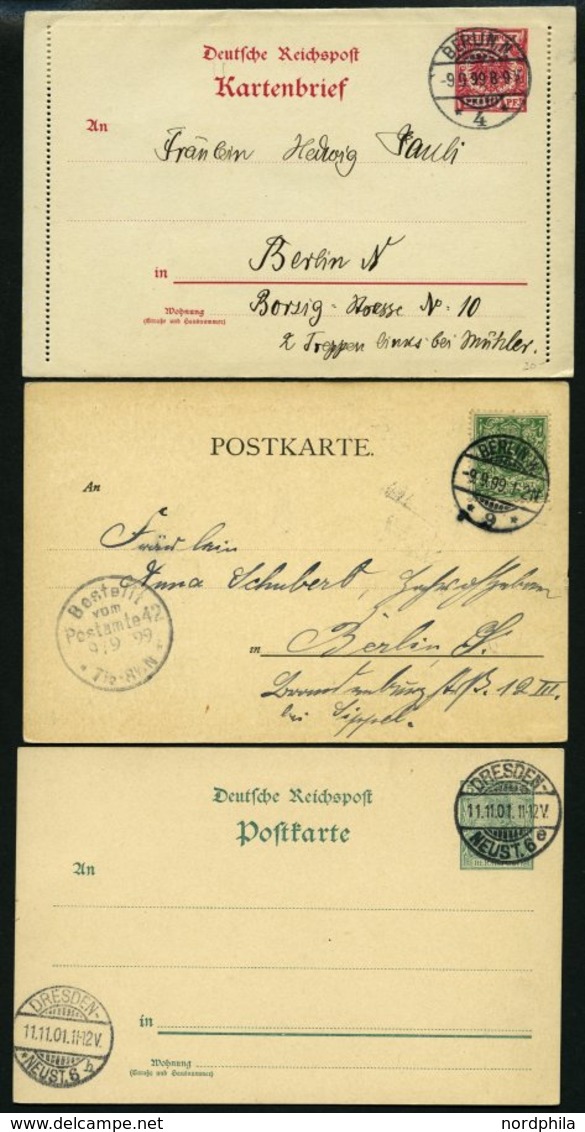 Deutsche Reichspost
Kartenbrief
BERLIN, N.
-9.9.99.8-9V.
* 4 *
PF.
An
Fräulein Hedwig Pauli
in
Berlin N
Wohnung
(Straße und Hausnummer)
Borsig-Strasse No. 10
2 Treppen links bei Mühler.
20.-
POSTKARTE.
BERLIN,
-9.9.99.1-2N.
* 9 *
An
Fräulein
Anna Schubert,
Bestellt
vom
Postamte 42
9/9 99
* 7½-8¼.N *
in
Berlin S.
Brandenburgstr. 12 III.
bei
Deutsche Reichspost
Postkarte
DRESDEN-
11.11.01.11-12V.
NEUST.6 e
An
DRESDEN-
11.11.01.11-12V.
*NEUST.6 b
in
Wohnung
(Straße und Hausnummer)
nordphila